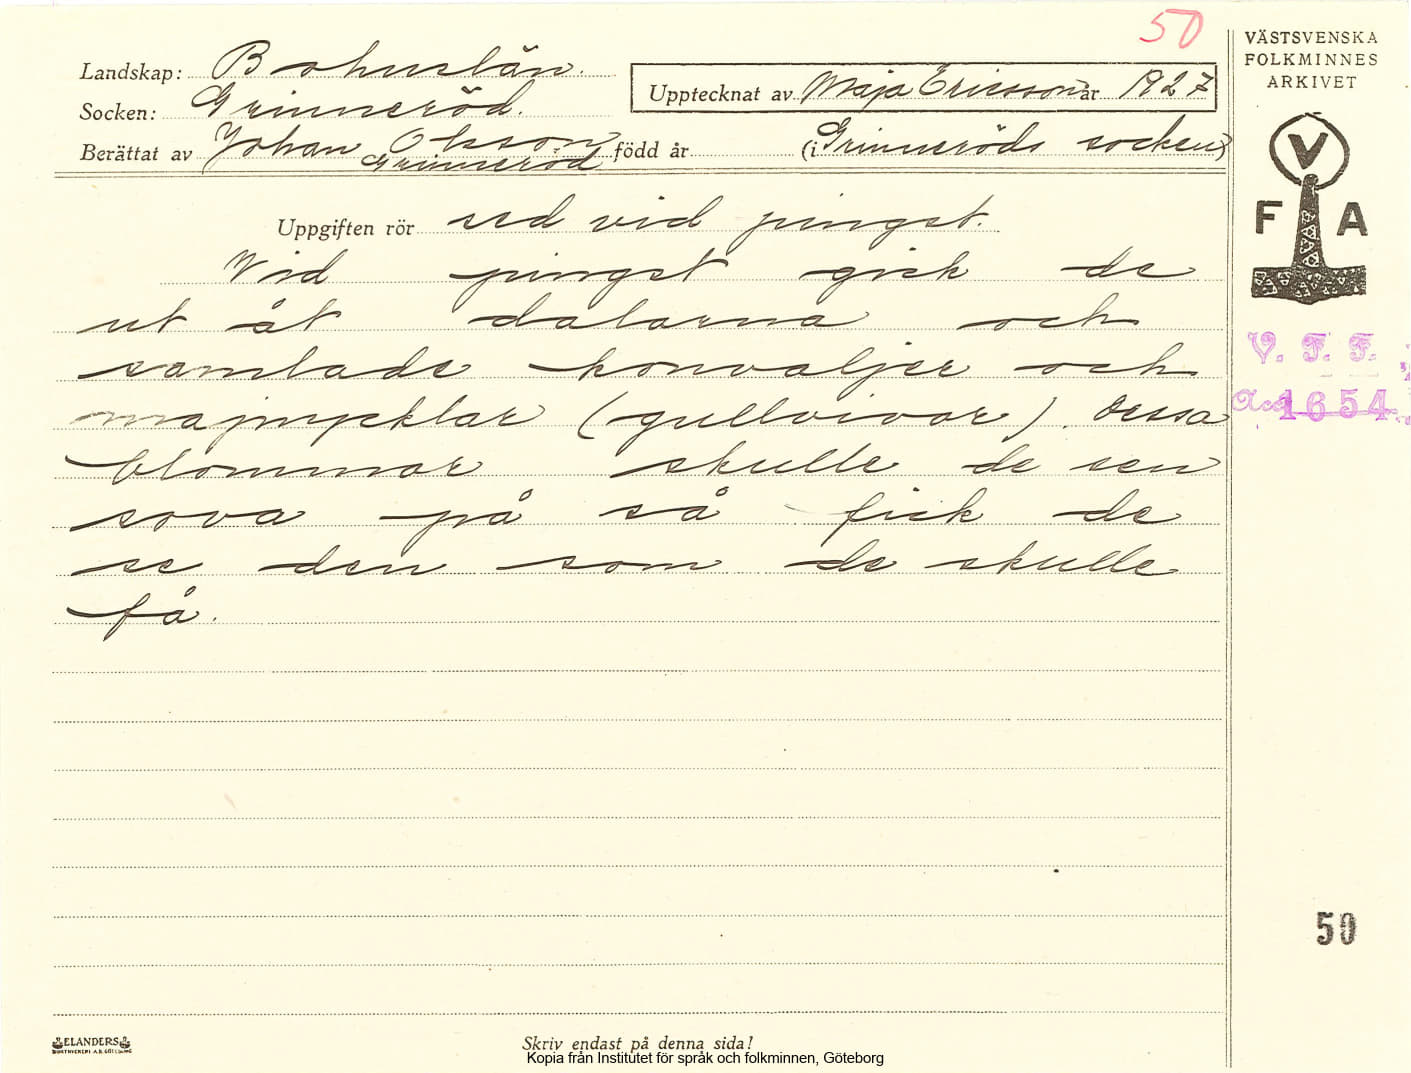 50
Landskap: Bohuslän.
Socken: Grinneröd.
Upptecknat av Maja Ericsson år 1927
Berättat av Johan Olsson född år (i Grinneröds socken)
Grinneröd
Uppgiften rör sed vid pingst.
Vid pingst gick de
ut åt dalarna och
samlade konvaljer och
majnycklar (gullvivor). Dessa
blommor skulle de sen
sova på så fick de
se den som de skulle
få.
VÄSTSVENSKA
FOLKMINNES
ARKIVET
V
F A
V. F. F.
Acc 1654
50
ELANDERS
BOKTRYCKERI A.B. GÖTEBORG
Skriv endast på denna sida!
Kopia från Institutet för språk och folkminnen, Göteborg